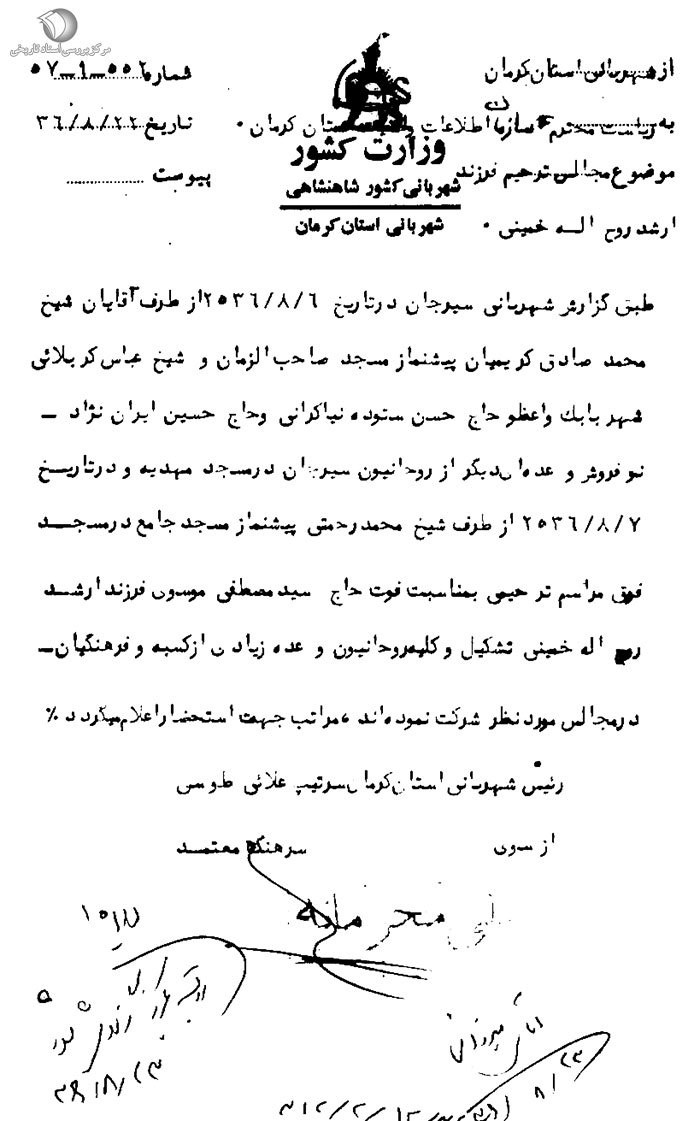 مرکز بررسی اسناد تاریخی
از شهربانی استان کرمان
شماره ۵۷-۹-۵۵۲
به ریاست محترم سازمان اطلاعات و امنیت استان کرمان ۰
تاریخ ۳۶/۸/۲۲
وزارت کشور
موضوع مجالس ترحیم فرزند
پیوست
شهربانی کشور شاهنشاهی
ارشد روح الله خمینی ۰
شهربانی استان کرمان
طبق گزارش شهربانی سیرجان درتاریخ ۲۵۳۶/۸/۶ از طرف آقایان شیخ
محمد صادق کریمیان پیشنماز مسجد صاحب الزمان و شیخ عباس کربلائی
شهر بابك واعظو حاج حسن ستوده نیاکرانی وحاج حسین ایران نژاد ـ
نو فروش و عده ای دیگر از روحانیون سیرجان درمسجد مهدیه و درتاریخ
۲۵۳۶/۸/۷ از طرف شیخ محمد رحمتی پیشنماز مسجد جامع درمسجد
فوق مراسم ترحیمی بمناسبت فوت حاج سید مصطفی موسوی فرزند ارشد
روح اله خمینی تشکیل و کلیه روحانیون و عده زیادی از کسبه و فرهنگیان ـ
درمجالس مورد نظر شرکت نموده اند ، مراتب جهت استحضار اعلام میگردد ٪
رئیس شهربانی استان کرمان سرتیپ علائی طوسی
از سوی سرهنگ معتمد
خیلی محرمانه
آقای میرزائی
۸/۲۳
۳۶/۸/۲۳